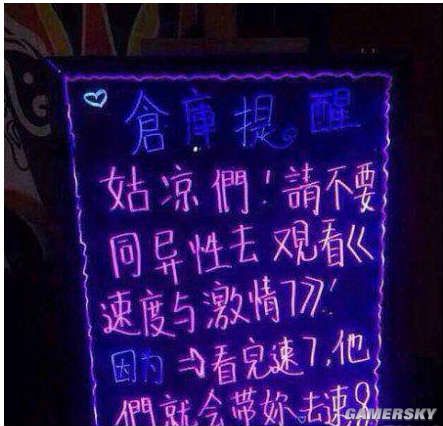 倉庫提醒
姑凉們!請不要
同异性去观看《
速度与激情7》!
因为→看完速7,他
們就会带妳去速8
GAMERSKY